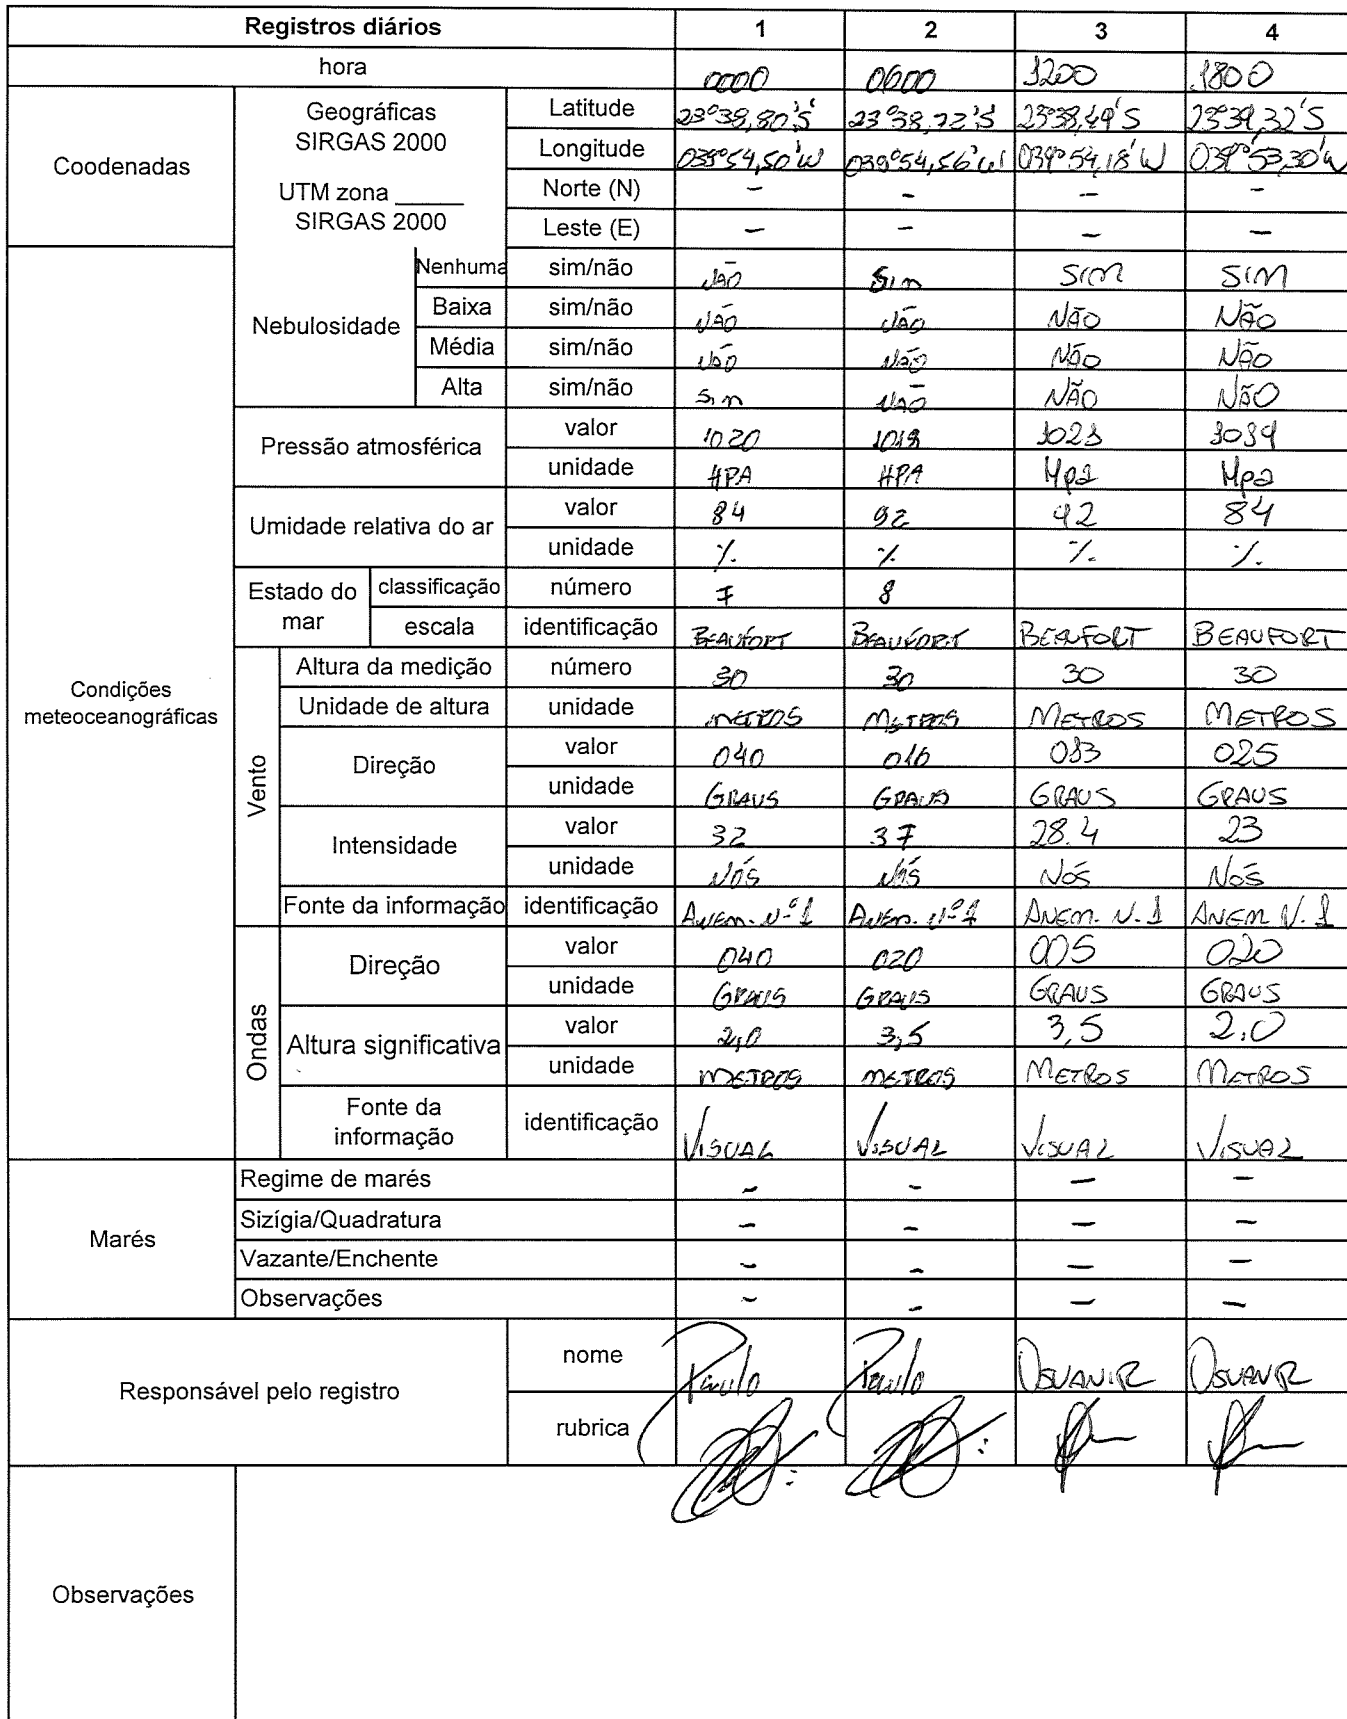 Registros diários 1 2 3 4
hora 0000 0600 1200 1800
Coodenadas
Geográficas
SIRGAS 2000
UTM zona ______
SIRGAS 2000
Latitude 23°38,80'S 23°38,72'S 23°38,49'S 23°39,32'S
Longitude 039°54,50'W 039°54,56'W 039°54,18'W 039°53,30'W
Norte (N) - - - -
Leste (E) - - - -
Condições
meteoceanográficas
Nebulosidade
Nenhuma sim/não NÃO Sim SIM SIM
Baixa sim/não NÃO NÃO NÃO NÃO
Média sim/não NÃO NÃO NÃO NÃO
Alta sim/não Sim NÃO NÃO NÃO
Pressão atmosférica
valor 1020 1021
unidade HPA HPA Hpa Hpa
Umidade relativa do ar
valor 84 92 92 84
unidade % % % %
Estado do
mar
classificação número 7 8
escala identificação BEAUFORT BEAUFORT BEAUFORT BEAUFORT
Vento
Altura da medição número 30 30 30 30
Unidade de altura unidade METROS METROS METROS METROS
Direção
valor 040 010 013 025
unidade GRAUS GRAUS GRAUS GRAUS
Intensidade
valor 32 37 28.4 23
unidade NÓS NÓS NÓS NÓS
Fonte da informação identificação ANEM. Nº 1 ANEM. Nº 1 ANEM. N. 1 ANEM N. 1
Ondas
Direção
valor 040 020 005 020
unidade GRAUS GRAUS GRAUS GRAUS
Altura significativa
valor 2,0 3,5 3,5 2.0
unidade METROS METROS METROS METROS
Fonte da
informação
identificação VISUAL VISUAL VISUAL VISUAL
Marés
Regime de marés - - - -
Sizígia/Quadratura - - - -
Vazante/Enchente - - - -
Observações - - - -
Responsável pelo registro
nome Paulo Paulo OSVANIR OSVANIR
rubrica
Observações